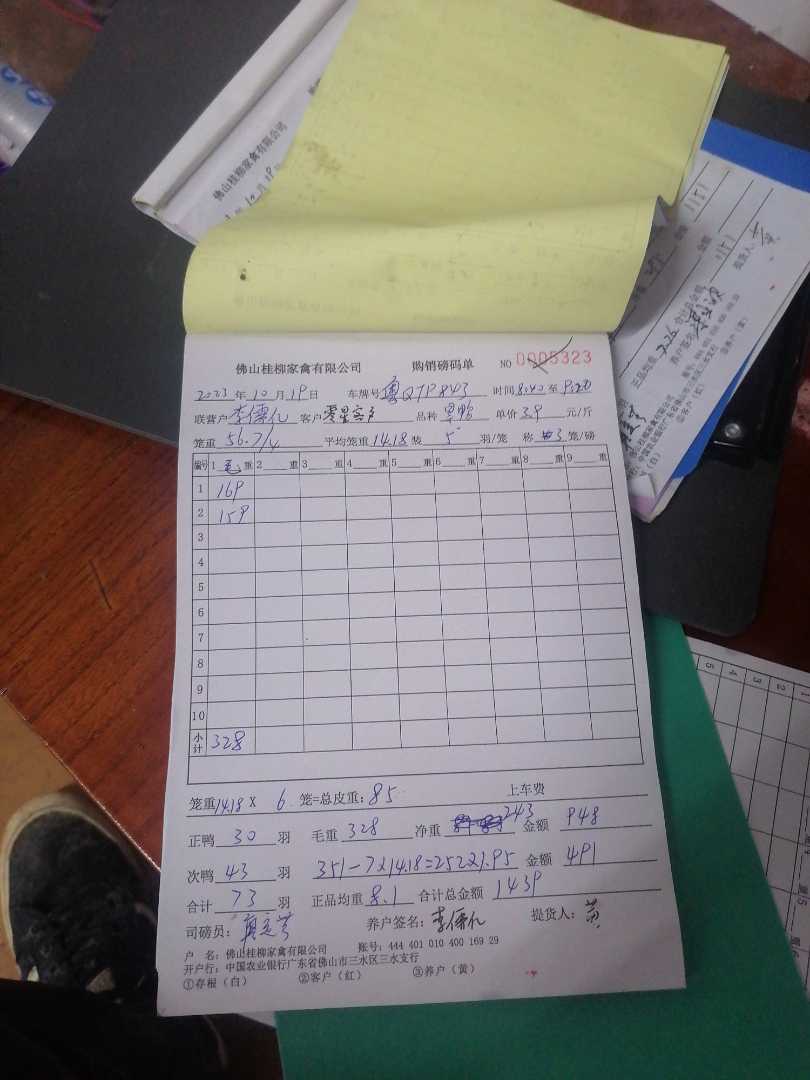 佛山桂柳家禽有限公司
佛山桂柳家禽有限公司 购销磅码单 NO 0005323
2023 年 10 月 19 日 车牌号 粤Q7P843 时间 8:40 至 9:20
联营户 李儒亿 客户 零星客户 品种 单价 3.9 元/斤
笼重 56.7/4 平均笼重 14.18 装 5 羽/笼 称 3 笼/磅
编号 1 毛 重 2 重 3 重 4 重 5 重 6 重 7 重 8 重 9 重
1 169
2 159
3
4
5
6
7
8
9
10
小计 328
笼重 14.18 X 6 笼=总皮重: 85 上车费
正鸭 30 羽 毛重 328 净重 243 金额 948
次鸭 43 羽 351-7x14.18=252x1.95 金额 491
合计 73 羽 正品均重 8.1 合计总金额 1439
司磅员: 养户签名: 李儒亿 提货人: 黄
户 名: 佛山桂柳家禽有限公司 账号: 444 401 010 400 169 29
开户行: 中国农业银行广东省佛山市三水区三水支行
①存根（白） ②客户（红） ③养户（黄）